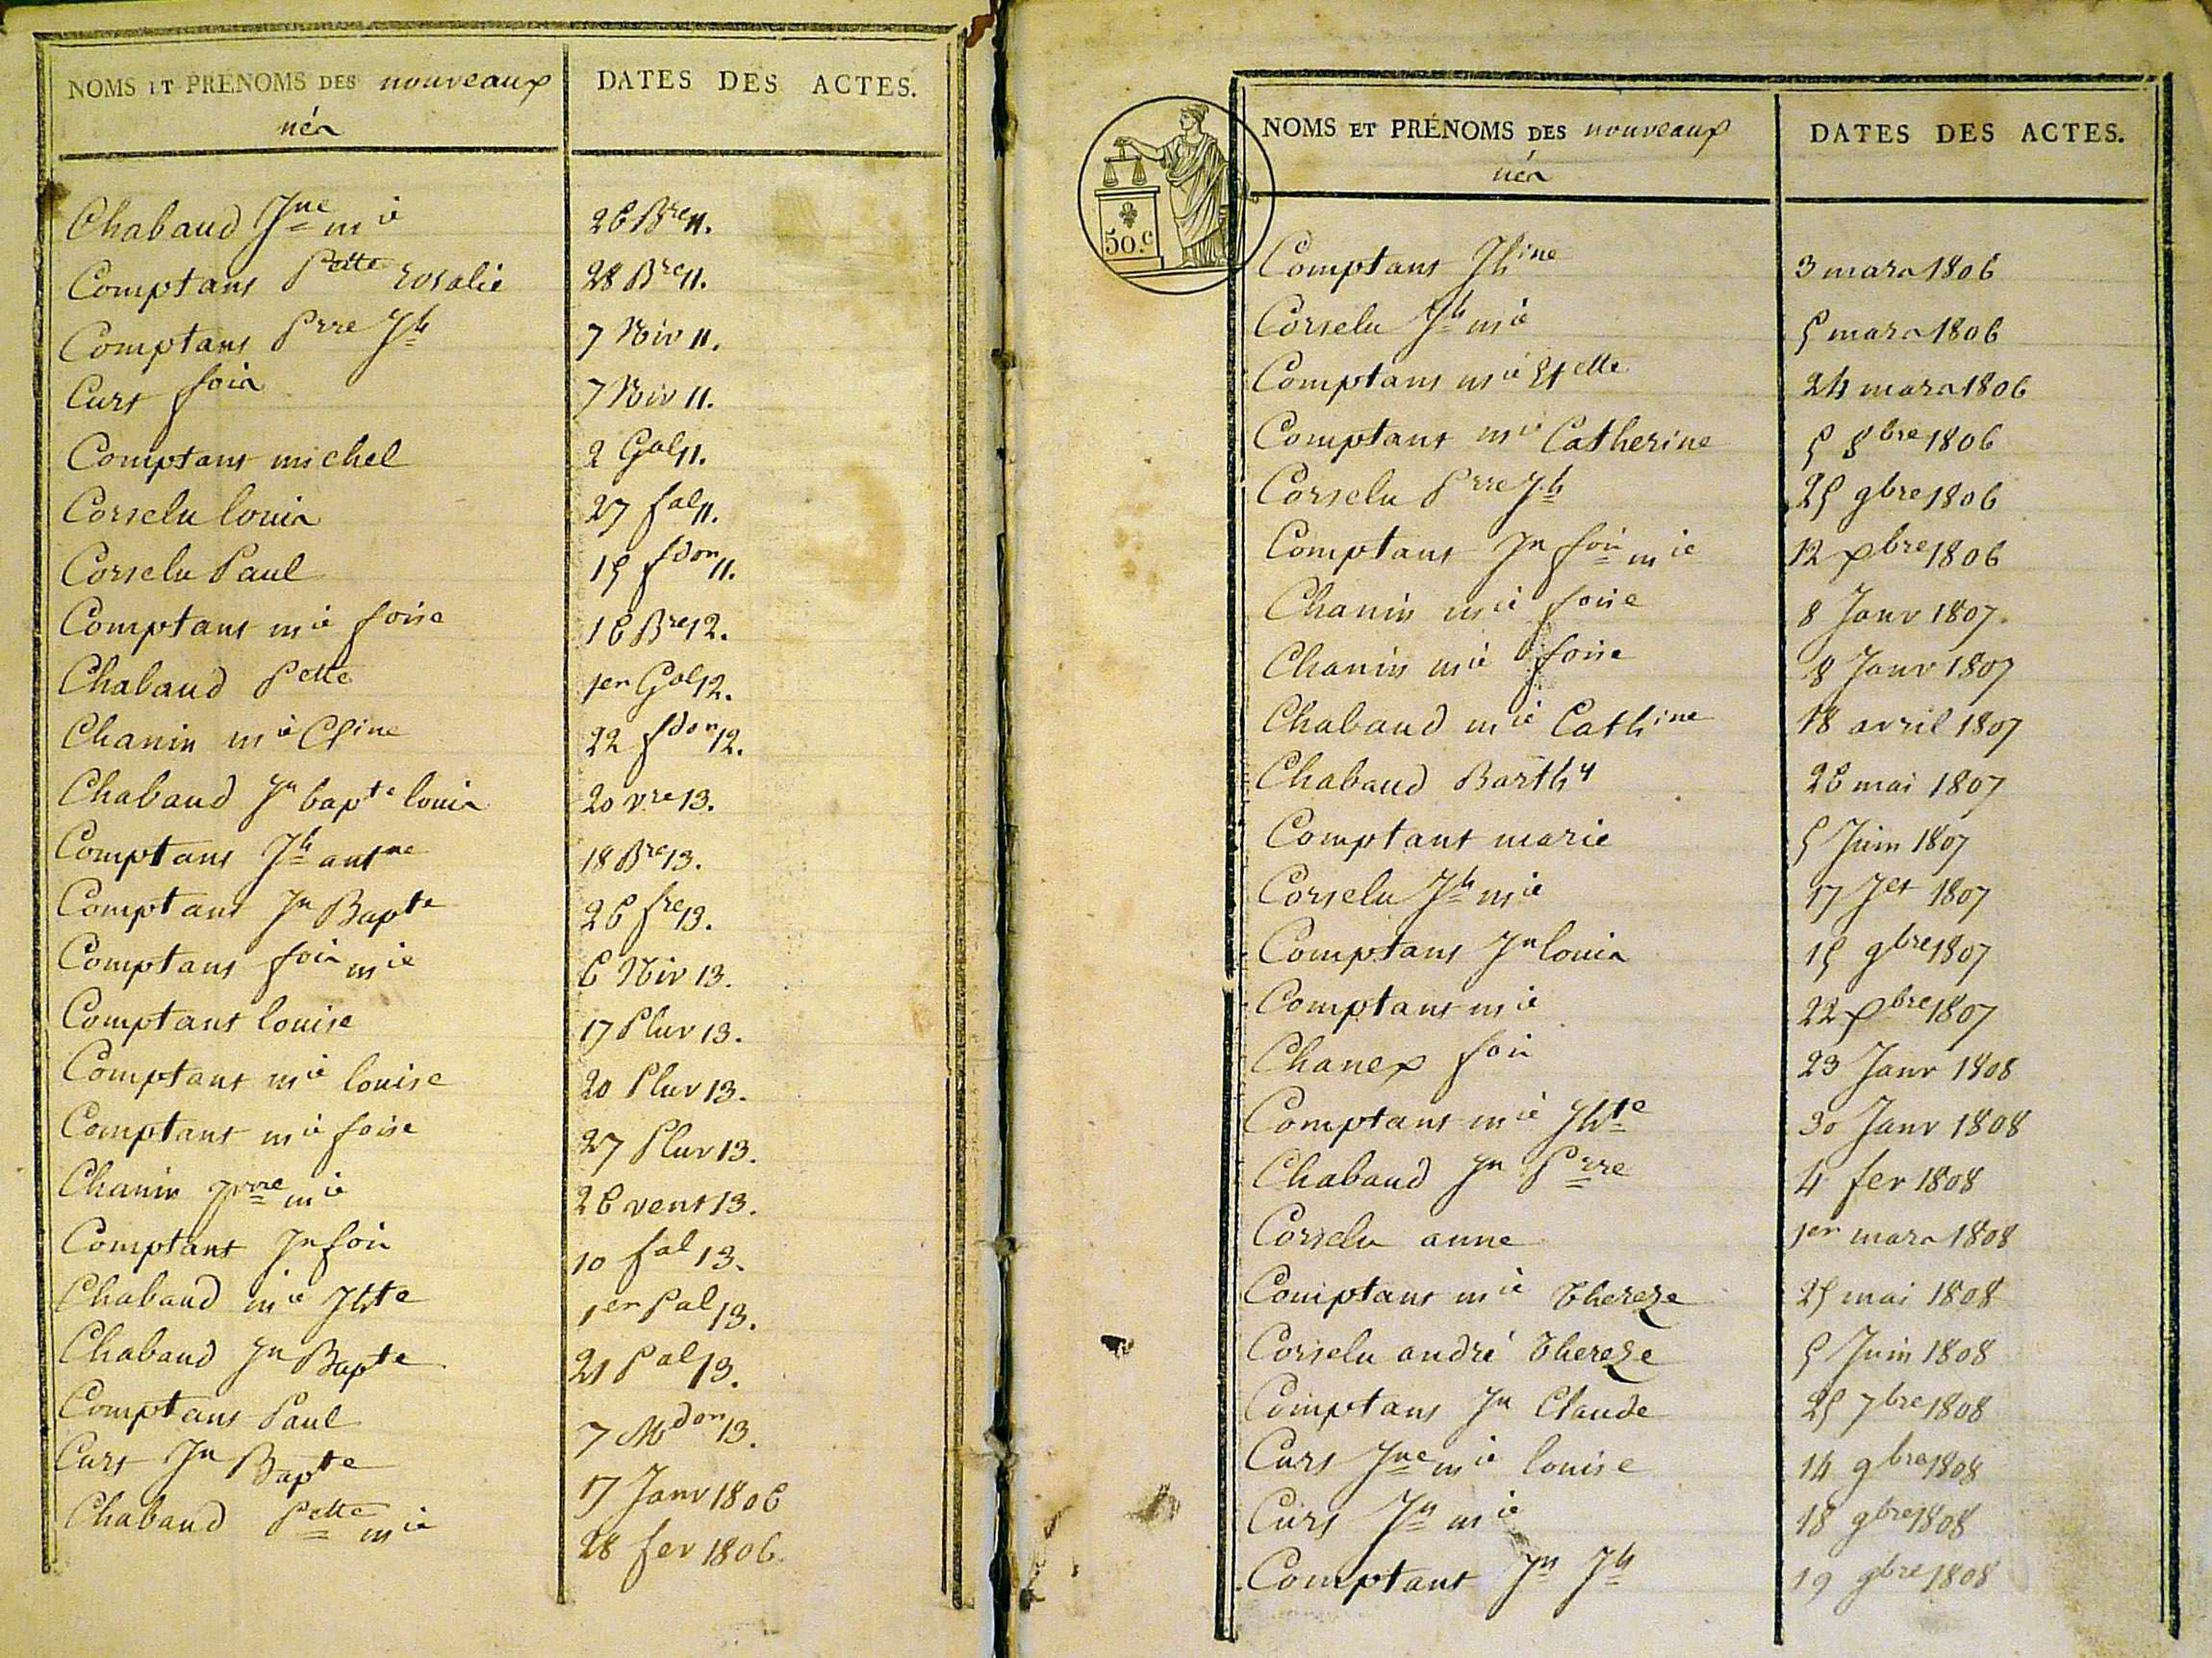 NOMS ET PRÉNOMS DES nouveaux
nés
DATES DES ACTES.
Chabaud Jne mie 26 Bre 11.
Comptans Pette rosalie 28 Bre 11.
Comptans Prre Jh 7 Niv 11.
Curt fois 7 Niv 11.
Comptant michel 2 Gal 11.
Corselu louis 27 fal 11.
Corselu Paul 15 fdor 11.
Comptant mie foise 16 Bre 12.
Chabaud Pette 1er Gal 12.
Chanin mie 22 fdor 12.
Chabaud Jn bapte louis 20 vre 13.
Comptans Jh antne 18 Bre 13.
Comptant Jn Bapte 26 fre 13.
Comptans fois mie 6 Niv 13.
Comptant louise 17 Pluv 13.
Comptant mie louise 20 Pluv 13.
Comptant mie foise 27 Pluv 13.
Chanin mie 26 vent 13.
Comptant Jn fois 10 fal 13.
Chabaud mie Jhte 1er Pal 13.
Chabaud Jn Bapte 21 Pal 13.
Comptans Paul 7 Mdor 13.
Curt Jn Bapte 17 Janv 1806
Chabaud Pette mie 28 fev 1806
50.c
NOMS ET PRÉNOMS DES nouveaux
nés
DATES DES ACTES.
Comptans Jhine 3 mars 1806
Corselu Jh mie 5 mars 1806
Comptans mie Etette 24 mars 1806
Comptant mie Catherine 5 8bre 1806
Corselu Prre Jh 25 9bre 1806
Comptant Jn fois mie 12 xbre 1806
Chanin mie foise 8 Janv 1807.
Chanin mie foise 8 Janv 1807
Chabaud mie Cathine 18 avril 1807
Chabaud Barthy 26 mai 1807
Comptant marie 5 Juin 1807
Corselu Jh mie 17 Jet 1807
Comptans Jn louis 15 9bre 1807
Comptant mie 22 xbre 1807
Chanex fois 23 Janv 1808
Comptant mie Jhte 30 Janv 1808
Chabaud Jn Prre 4 fev 1808
Corselu anne 1er mars 1808
Comptans mie Thereze 25 mai 1808
Corselu andré Thereze 5 Juin 1808
Comptans Jn Claude 25 7bre 1808
Curs Jne mie louise 14 9bre 1808
Curs Jn mie 18 9bre 1808
Comptant Jn Jh 19 9bre 1808